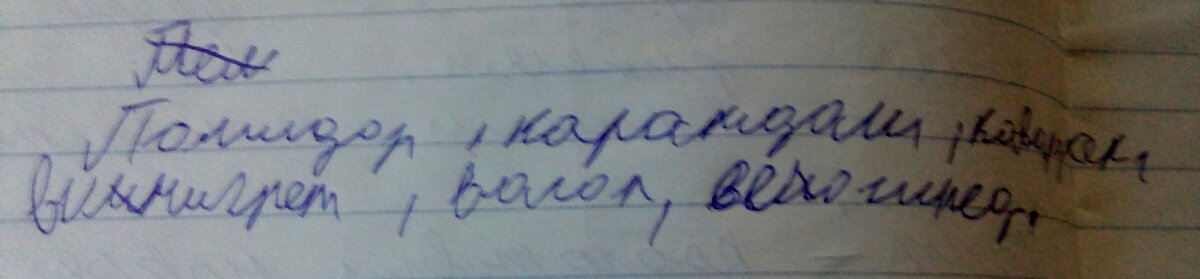 Помидор, карандаш,
виннигрет, вагон, велосипед.